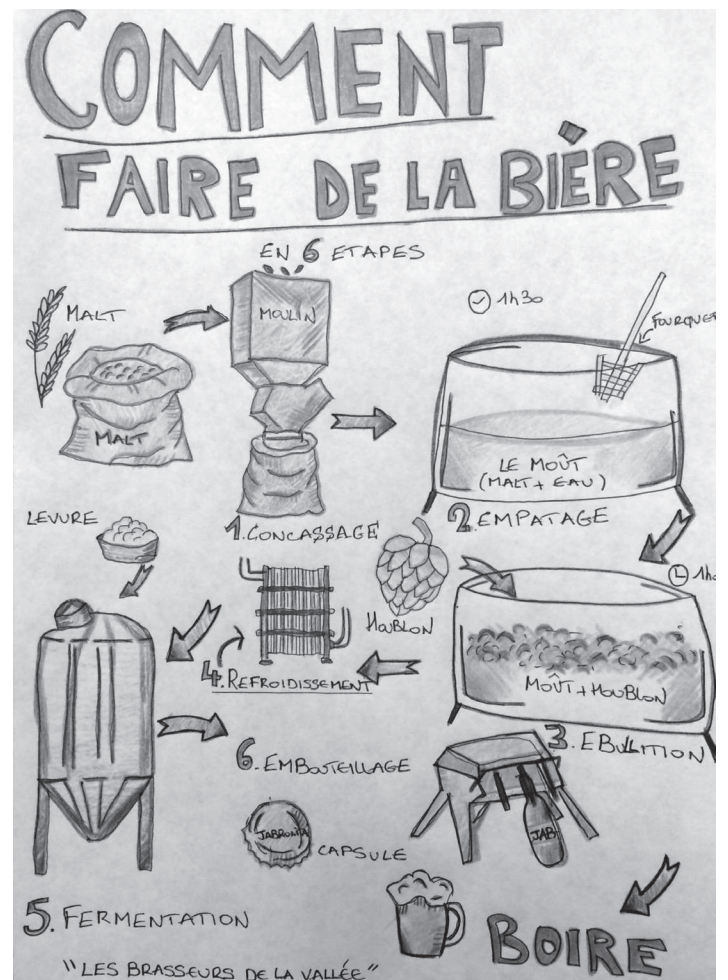 COMMENT
FAIRE DE LA BIÈRE
EN 6 ETAPES
MALT
MALT
MOULIN
1h30
LE MOÛT
(MALT + EAU)
1. CONCASSAGE
2. EMPATAGE
LEVURE
HOUBLON
MOÛT + HOUBLON
3. EBULLITION
4. REFROIDISSEMENT
6. EMBOUTEILLAGE
CAPSULE
JAB
5. FERMENTATION
BOIRE
"LES BRASSEURS DE LA VALLÉE"